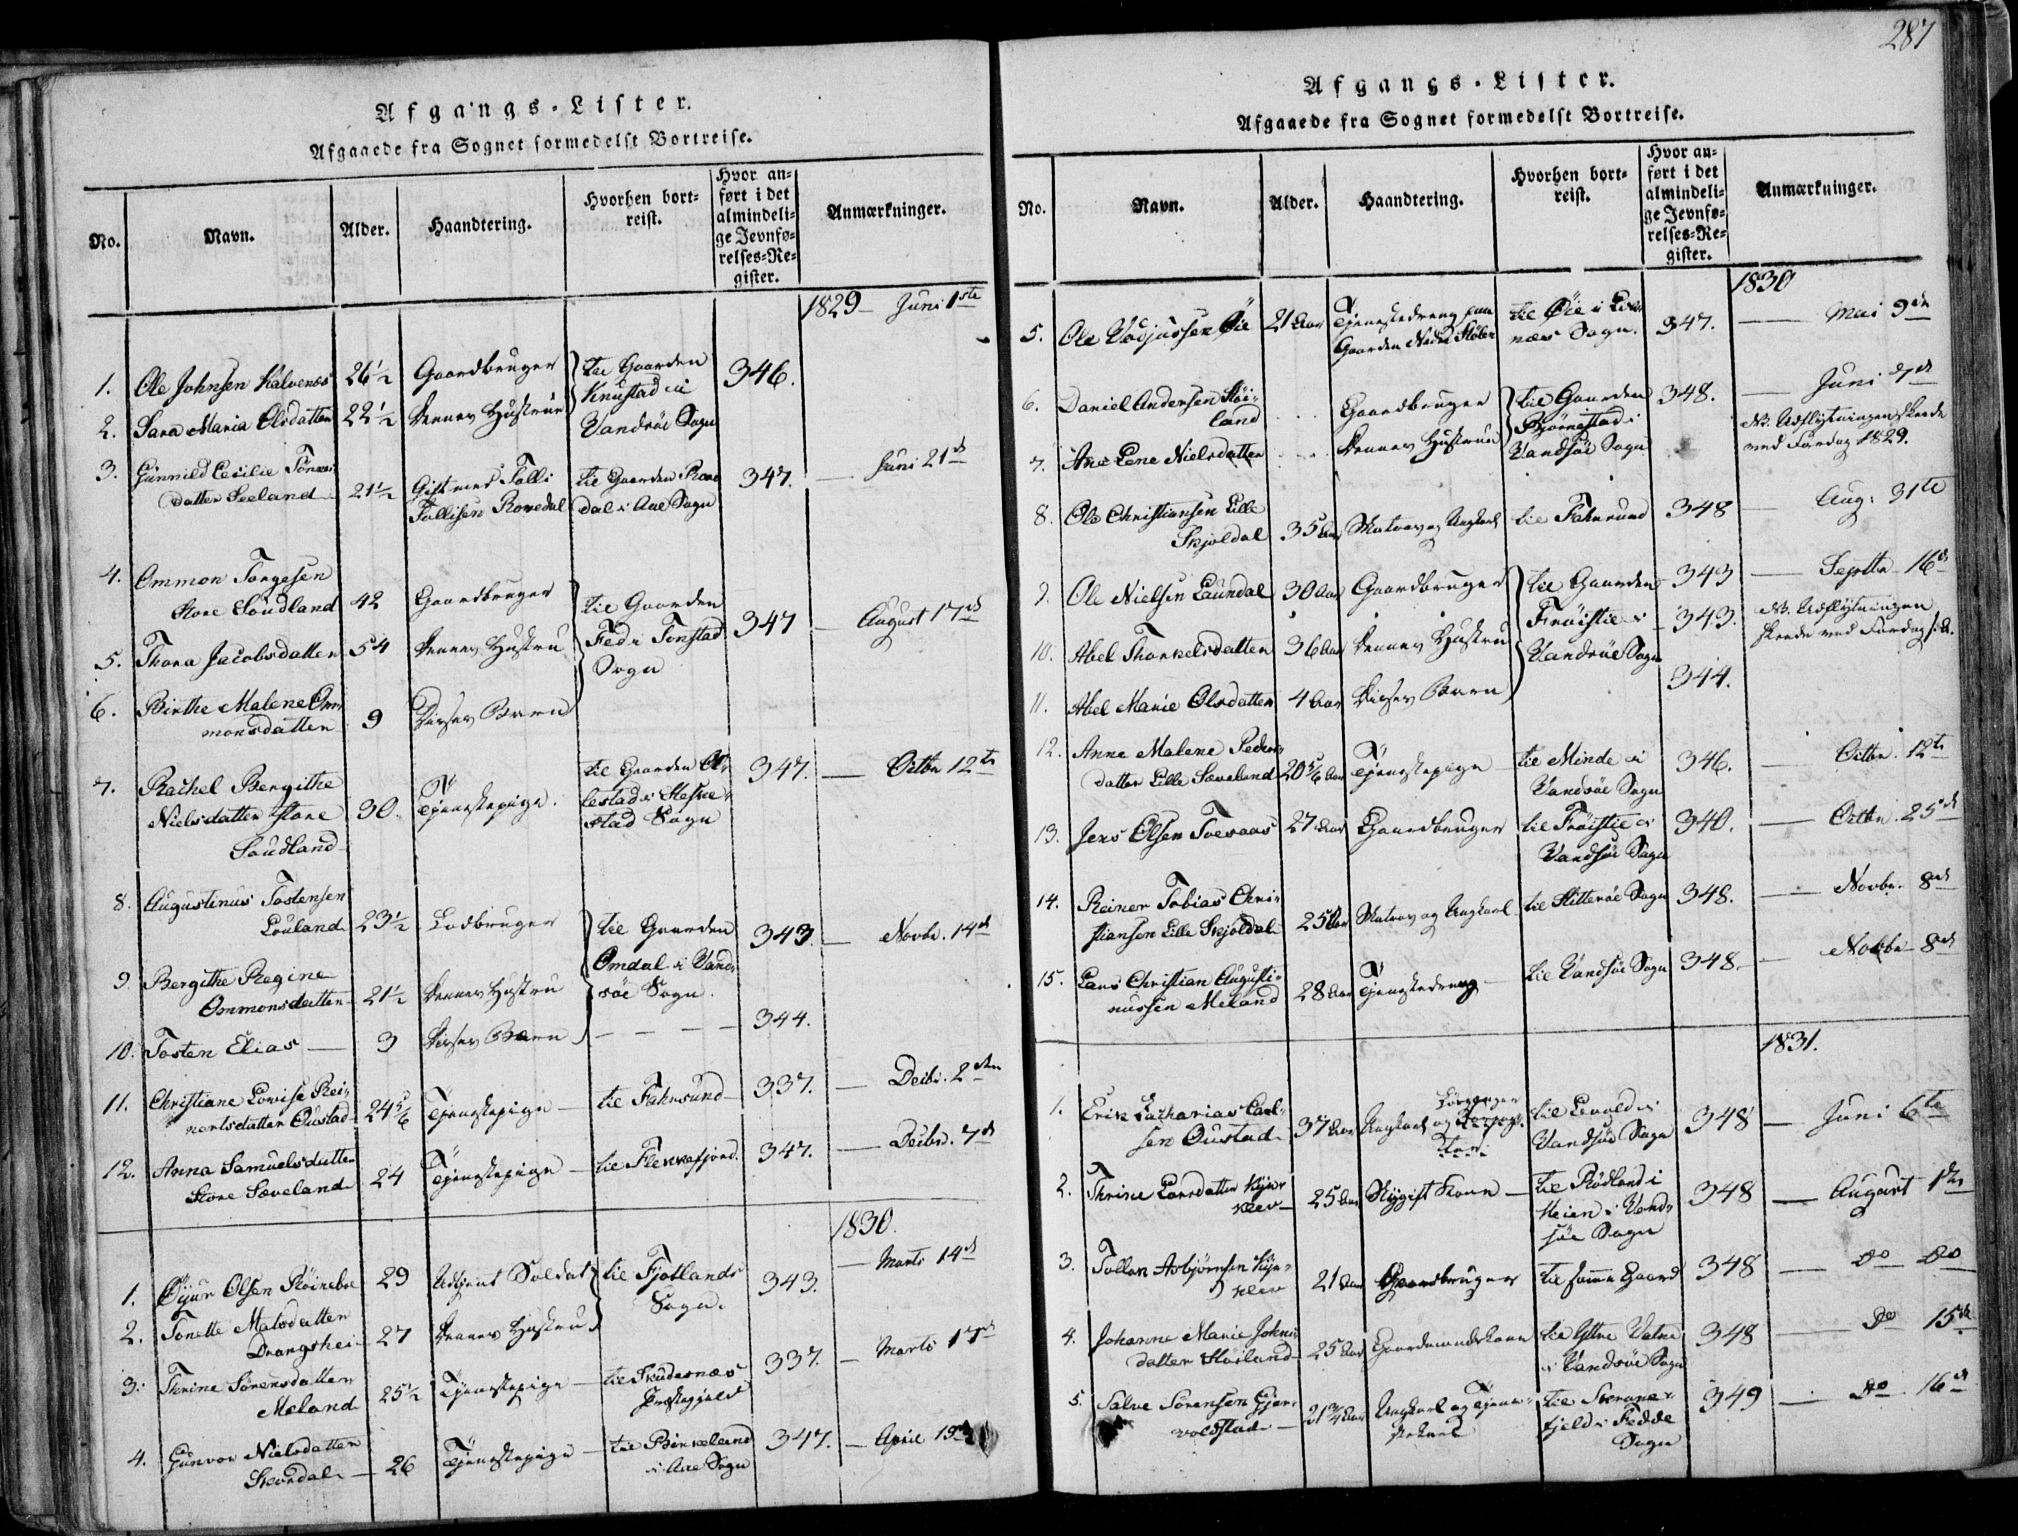 Afgangs-Lister.
Afgaaede fra Sognet formedelst Bortreise.
No. Navn. Alder. Haandtering. Hvorhen bort-
reist. Hvor an-
ført i det
almindeli-
ge Jevnfø-
relses-Re-
gister. Anmærkninger.
1829 — Juni 1ste
1. Ole Johnsen Kalvenes 26½ Gaardbruger til Gaarden
Knustad i
Vandsøe Sogn 346.
2. Sara Maria Olsdatter 22½ Dennes Hustrue
3. Gunnild Cecilie Tønnes-
datter Seeland 21½ Gift med Tolli
Tollisen Rovedal til Gaarden Rove
dal i Aae Sogn 347. — Juni 21de
4. Ommon Torgesen
Store Loudland 42 Gaardbruger til Gaarden
Fed i Tonstad
Sogn 347 — August 17de
5. Thora Jacobsdatter 54 Dennes Hustru
6. Birthe Malene Om-
monsdatter 9 Disses Barn
7. Rachel Bergithe
Nielsdatter Store
Loudland 30. Tjenestepige. til Gaarden
i
Sogn 347. — Octbr 12te
8. Augustinus Tostensen
Louland 23½ Lodbruger til Gaarden
Omdal i Vand-
søe Sogn. 343 — Novbr. 14de
9. Bergithe Regine
Ommonsdatter 21½ Dennes Hustru
10. Tosten Elias — 3 Disses Barn — — — — 344.
11. Christiane Lovise Rei-
nertsdatter Oustad 24 5/6 Tjenestepige — til Fahrsund — 337. — Decbr. 2den
12. Anna Samuelsdatter
Store Sæveland 24 Tjenestepige — til Flekkefjord. 347. — Decbr. 7de
1830.
1. Øjur Olsen Røinebø 29 Soldat til Fjotlands
Sogn. 343. — Marts 14de
2. Tonette Matsdatter
Drangshei 27 Dennes Hustru
3. Thrine Sørensdatter
Meland 25½ Tjenestepige — til Skudesnæs
Præstegjeld 337. — Marts 17de
4. Gunvor Nielsdatter
26 Tjenestepige — til Birkeland
i Aae Sogn 347. — April 19de
287
Afgangs-Lister.
Afgaaede fra Sognet formedelst Bortreise.
No. Navn. Alder. Haandtering. Hvorhen bort-
reist. Hvor an-
ført i det
almindeli-
ge Jevnfø-
relses-Re-
gister. Anmærkninger.
1830
5. Ole Øie 21 Aar Tjenestedreng paa
Gaarden Nedre til Øie i
næs Sogn. 347. — Mai 9de
6. Daniel Andersen Høi-
land . . . Gaardbruger til Gaarden
Bjørnestad i
Vandsøe Sogn 348. — Juni 7de
NB. Udflytningen skeede
ved Fardag 1829.
7. Ane Lene Nielsdatter . . . Dennes Hustrue
8. Ole Christiansen Lille
Skjoldal 35 Aar Matros og Ungkarl til Fahrsund 348 — Aug: 31te
9. Ole Nielsen Laundal 30 Aar Gaardbruger til Gaarden
Frøistie i
Vandsøe Sogn 343 — Septbr 16de
NB. Udflytningen
skeede ved Fardag
10. Abel Thorkelsdatter 36 Aar Dennes Hustru 343.
11. Abel Marie Olsdatter 4 Aar Disses Barn 344.
12. Anne Malene Peders-
datter Lille Sæveland 20 5/6 Aar Tjenestepige — til Minde i
Vandsøe Sogn 346. — Octbr. 12te
13. Jens Olsen Toesaas 27 Aar Gaardbruger til Frøistie i
Vandsøe Sogn 340. — Octbr. 25de
14. Reiner Tobias Chri-
stiansen Lille Skjoldal 25 Aar Matros og Ungkarl til Hitterøe Sogn 348. — Novbr. 8de
15. Lars Christian Augusti-
nussen Meland 28 Aar Tjenestedreng — til Vandsøe Sogn 348. — Novbr 8de
1831.
1. Erik Zacharias Carl-
sen Oustad 37 Aar Ungkarl og til
Vandsøe Sogn 348 — Juni 6te
2. Thrine Larsdatter
25 Aar Nygift Kone — til Rødland i
Heien i Vand-
søe Sogn 348 — August 1ste
3. Tollak Asbjørnsen
21 Aar Gaardbruger til samme Gaard 348 — Do Do
4. Johanne Marie Johns-
datter Høiland 25 Aar Gaardmandskone til Yttre Vatne
i Vandsøe Sogn 348 — Do 15de
5. Salve Sørensen Gjer-
voldstad — 21¾ Aar Ungkarl og Tjene-
stekarl til
fjeld i Fedde
Sogn 349 — Do 16de